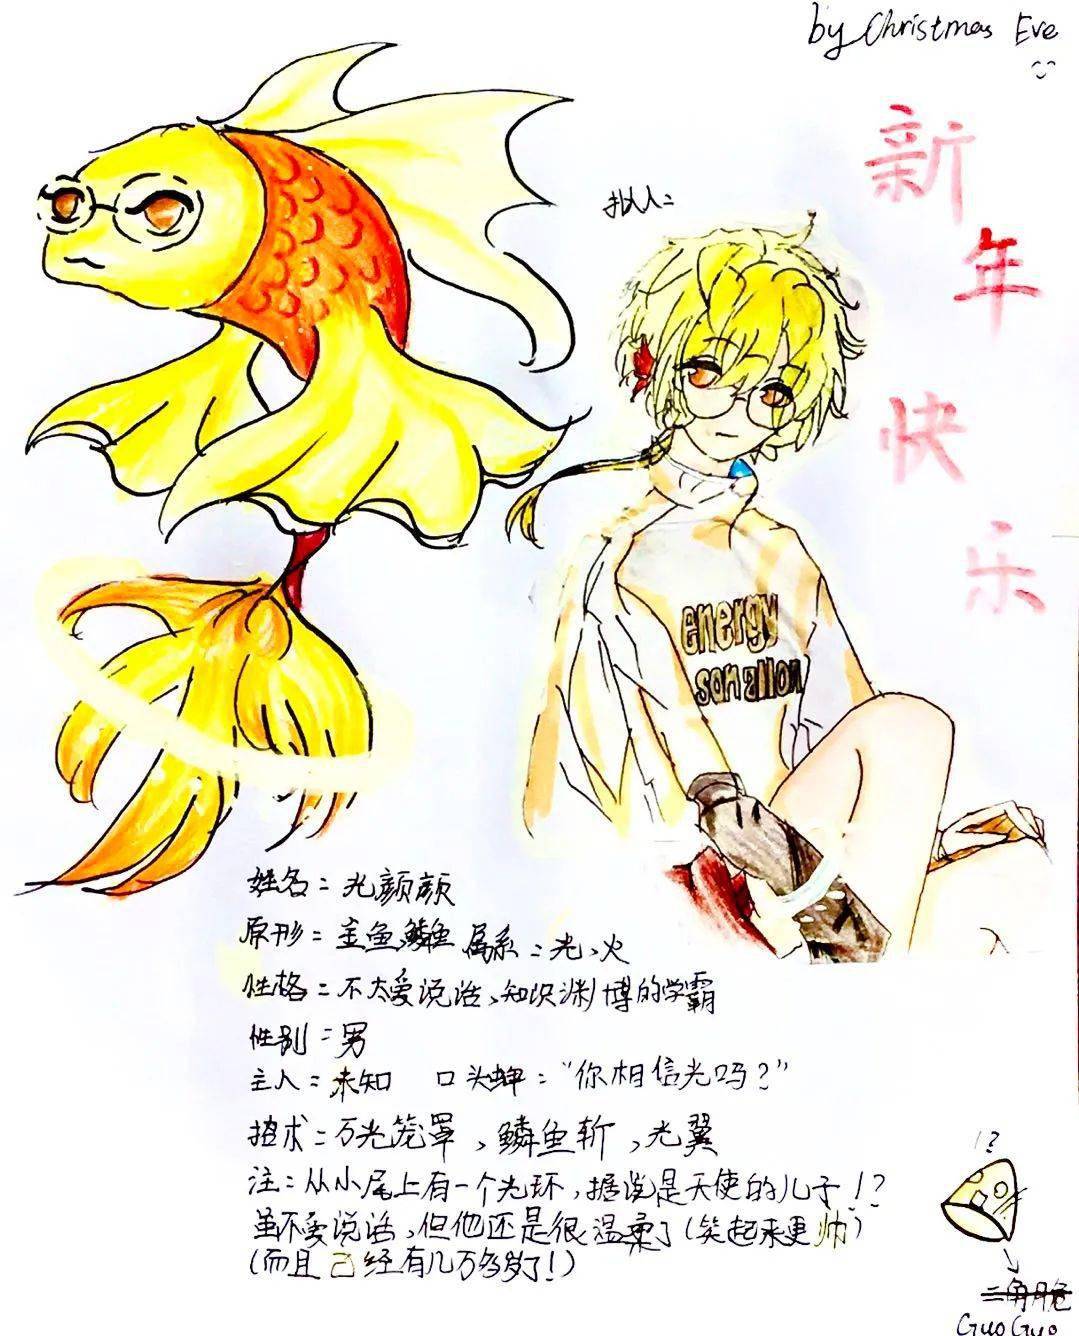 by Christmas Eve
新年快乐
拟人:
energy
sonallon
姓名:光颜颜
原形:金鱼鳞鱼 属系:光、火
性格:不太爱说话、知识渊博的学霸
性别:男
主人:未知 口头蝉:“你相信光吗?”
招术:万光笼罩,鳞鱼斩,光翼
注:从小尾上有一个光环,据说是天使的儿子!?
虽不爱说话,但他还是很温柔了(笑起来更帅)
(而且己经有几万多岁了!)
!?
三角脆
GuoGuo